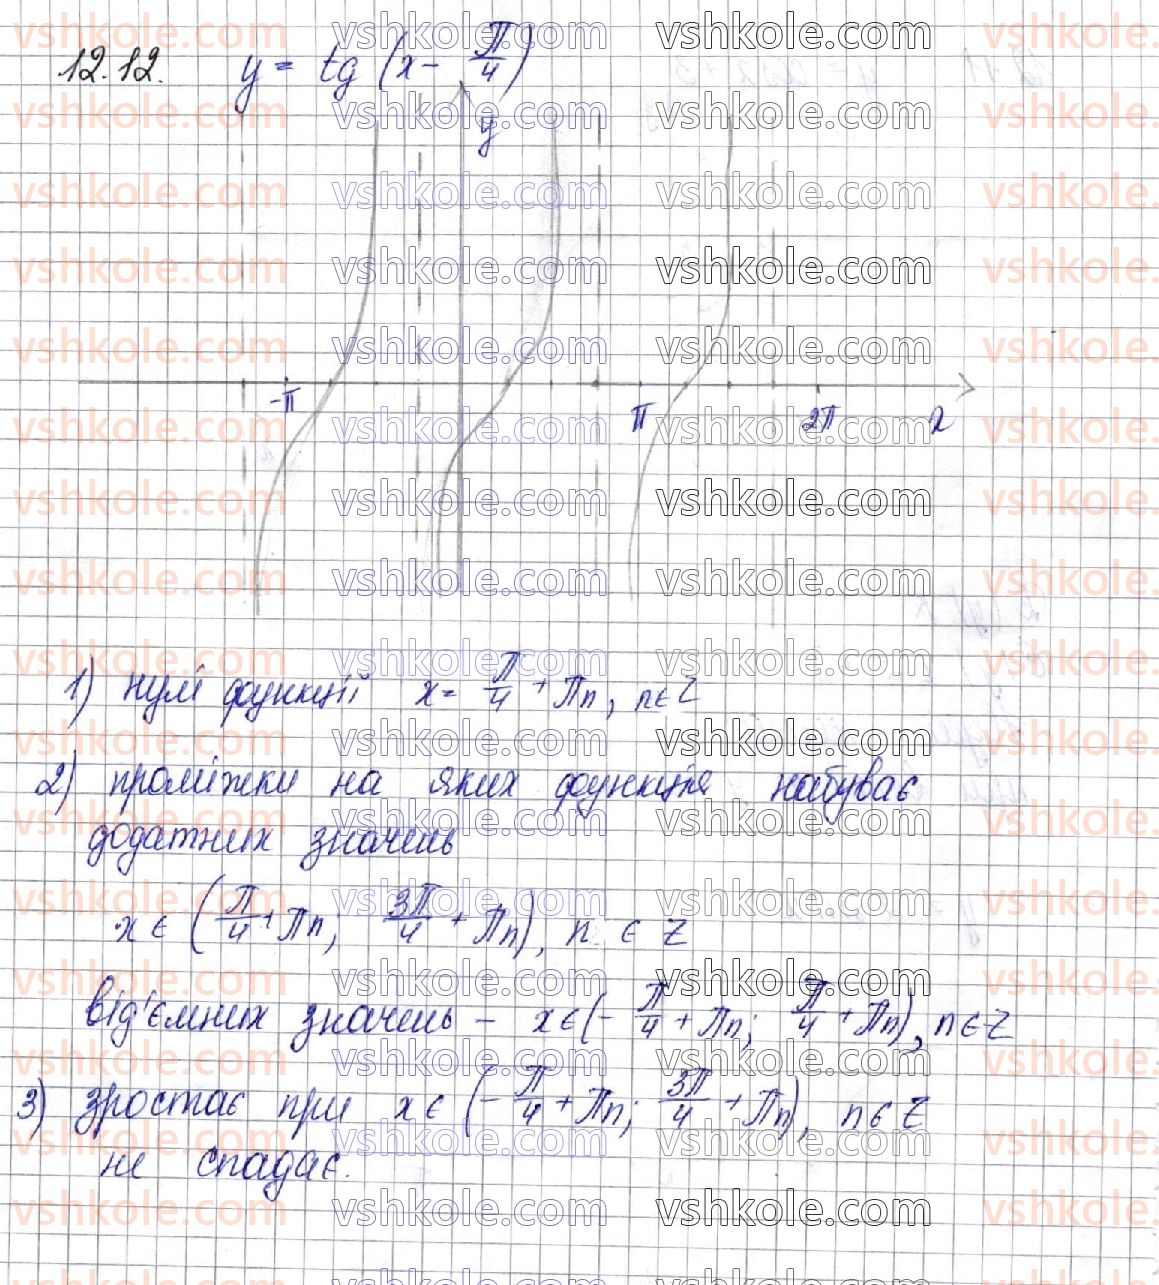 12.12. y = tg (x - π/4)
y
-π π 2π x
1) нулі функції x = π/4 + πn, n ∈ Z
2) проміжки на яких функція набуває
додатних значень
x ∈ (π/4 + πn; 3π/4 + πn), n ∈ Z
від'ємних значень - x ∈ (- π/4 + πn; π/4 + πn), n ∈ Z
3) зростає при x ∈ (- π/4 + πn; 3π/4 + πn), n ∈ Z
не спадає.
vshkole.com